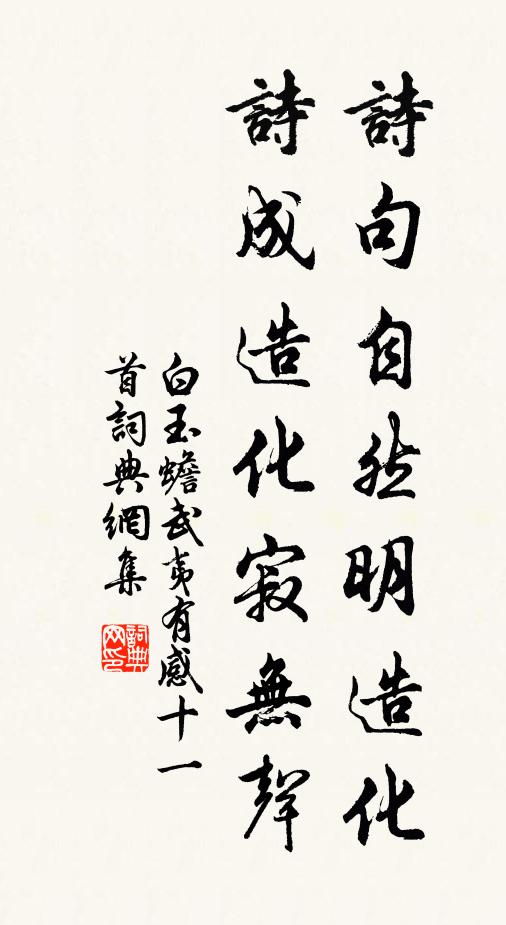 詩句自然明造化
詩成造化寂無聲
白玉蟾武夷有感十一
首詞典網集
詞典
网印